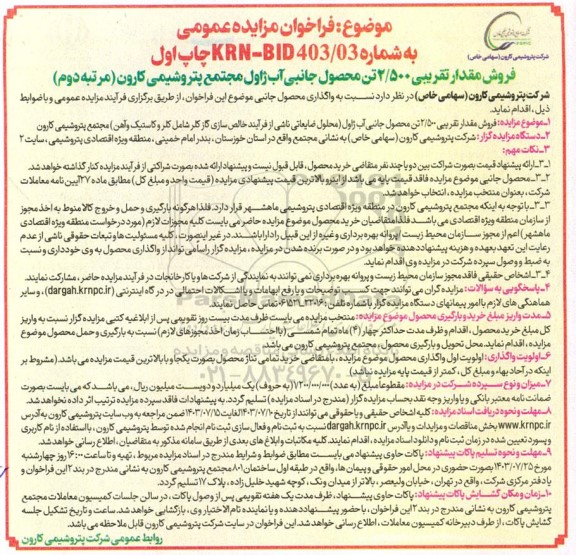 شرکت پتروشیمی کارون (سهامی خاص)
موضوع: فراخوان مزایده عمومی
به شماره KRN-BID 403/03 چاپ اول
فروش مقدار تقریبی ۲/۵۰۰ تن محصول جانبی آب ژاول مجتمع پتروشیمی کارون (مرتبه دوم)
شرکت پتروشیمی کارون (سهامی خاص) در نظر دارد نسبت به واگذاری محصول جانبی موضوع این فراخوان، از طریق برگزاری فرآیند مزایده عمومی و با ضوابط
ذیل، اقدام نماید.
۱_موضوع مزایده: فروش مقدار تقریبی ۲/۵۰۰ تن محصول جانبی آب ژاول (محلول ضایعاتی ناشی از فرآیند خالص سازی گاز کلر شامل کلر و کاستیک و آهن) مجتمع پتروشیمی کارون
۲_دستگاه مزایده گزار: شرکت پتروشیمی کارون (سهامی خاص) به نشانی مجتمع واقع در استان خوزستان، بندر امام خمینی، منطقه ویژه اقتصادی پتروشیمی، سایت ۲
۳_نکات مهم:
۳_۱_ارائه پیشنهاد قیمت بصورت شراکت بین دو یا چند نفر متقاضی خرید محصول، قابل قبول نیست و پیشنهاد ارائه شده بصورت شراکتی از فرآیند مزایده کنار گذاشته خواهد شد.
۳_۲_محصول جانبی موضوع مزایده فاقد قیمت پایه می باشد از اینرو بالاترین قیمت پیشنهادی مزایده (قیمت واحد و مبلغ کل) مطابق ماده ۲۷ آیین نامه معاملات
شرکت، بعنوان منتخب مزایده، انتخاب خواهد شد.
۳_۳_با توجه به اینکه مجتمع پتروشیمی کارون در منطقه ویژه اقتصادی پتروشیمی ماهشهر قرار دارد. فلذا هرگونه بارگیری و حمل و خروج کالا منوط به اخذ مجوز
از سازمان منطقه ویژه اقتصادی می باشد فلذا متقاضیان خرید محصول موضوع مزایده حاضر می بایست کلیه مجوزات لازم (مورد درخواست منطقه ویژه اقتصادی
ماهشهر) اعم از مجوز سازمان محیط زیست، پروانه بهره برداری و غیره از این قبیل را دارا باشند. در غیر اینصورت، کلیه مسئولیت ها و تبعات حقوقی ناشی از عدم
رعایت این تعهد بعهده و هزینه پیشنهاد دهنده خواهد بود و در صورت برنده شدن در مزایده، مزایده گزار راسا می تواند از واگذاری محصول به وی خودداری و نسبت
به ضبط و وصول سپرده شرکت در مزایده وی اقدام نماید.
۳_۴_اشخاص حقیقی فاقد مجوز سازمان محیط زیست و پروانه بهره برداری نمی توانند به نمایندگی از شرکت ها و یا کارخانجات در فرآیند مزایده حاضر، مشارکت نمایند.
۴_پاسخگویی به سوالات: مزایده گران می توانند جهت کسب توضیحات و یا رفع ابهامات و یا اشکالات احتمالی در درگاه اینترنتی (dargah.krnpc.ir)، و سایر
هماهنگی های لازم با امور پیمانهای دستگاه مزایده گزار با شماره تلفن: ۰۶۱۵۲۱۲۲۰۱۶ تماس حاصل نمایند.
۵_مدت واریز مبلغ خرید و بارگیری محصول موضوع مزایده: منتخب مزایده می بایست ظرف مدت بیست روز تقویمی پس از ابلاغیه کتبی مزایده گزار نسبت به واریز
کل مبلغ خرید محصول، اقدام و ظرف مدت حداکثر چهار (۴) ماه تمام شمسی (با احتساب زمان اخذ مجوزهای لازم) نسبت به بارگیری و حمل محصول موضوع
مزایده، اقدام نماید. محل تحویل و بارگیری محصول، مجتمع پتروشیمی کارون می باشد.
۶_اولویت واگذاری: اولویت اول واگذاری محصول موضوع مزایده، با متقاضی خرید تمامی تناژ محصول بصورت یکجا و با بالاترین قیمت مزایده می باشد. (مشروط بر
اینکه در آحاد بها، و مبلغ کل، کمتر از قیمت پایه مزایده نباشد)
۷_میزان و نوع سپرده شرکت در مزایده: مقطوعا مبلغ (به عدد) ۱/۲۰۰/۰۰۰/۰۰۰ (به حروف) یک میلیارد و دویست میلیون ریال، می باشد که می بایست بصورت
ضمانت نامه معتبر بانکی و یا واریز وجه نقد بحساب مزایده گزار (مندرج در اسناد مزایده) تسلیم گردد. به پیشنهادات فاقد سپرده مزایده ترتیب اثر داده نخواهد شد.
۸_مهلت و نحوه دریافت اسناد مزایده: کلیه اشخاص حقیقی و یا حقوقی می توانند از تاریخ ۱۴۰۳/۰۷/۱۰ لغایت ۱۴۰۳/۰۷/۱۵ ضمن مراجعه به وب سایت پتروشیمی کارون به آدرس
www.krnpc.ir بخش مناقصات و مزایدات و یا آدرس dargah.krnpc.ir نسبت به ثبت نام و فعال سازی ثبت نام انجام شده توسط پتروشیمی کارون، با استفاده از نام کاربری
و پسورد تعیین شده در زمان ثبت نام و دانلود اسناد مزایده، اقدام نمایند. کلیه مکاتبات و ابلاغ های بعدی از طریق سامانه مذکور به متقاضیان، اطلاع رسانی خواهد شد.
۹_مهلت و نحوه تسلیم پاکات پیشنهاد: پاکات حاوی پیشنهاد می بایست مطابق ضوابط و شرایط مندرج در اسناد مزایده مربوط، تهیه و تا ساعت ۱۶:۰۰ روز چهارشنبه
مورخ ۱۴۰۳/۰۷/۲۵ بصورت حضوری در محل امور حقوقی و پیمان ها، واقع در طبقه اول ساختمان ۸۰۱ مجتمع پتروشیمی کارون به نشانی مندرج در بند ۲ این فراخوان و
یا دفتر مرکزی شرکت، واقع در تهران، خیابان ولیعصر، بالاتر از میدان ونک، کوچه شهید خلیل زاده، پلاک ۱۷ تسلیم گردد.
۱۰_زمان و مکان گشایش پاکات پیشنهاد: پاکات حاوی پیشنهاد، ظرف مدت یک هفته تقویمی پس از وصول پاکات، در سالن جلسات کمیسیون معاملات مجتمع
پتروشیمی کارون به نشانی مندرج در بند ۲ این فراخوان، با حضور پیشنهاد دهنده و یا نماینده تام الاختیار وی، بازگشایی خواهد شد. ساعت و تاریخ تشکیل جلسه
گشایش پاکات، از طرف دبیرخانه کمیسیون معاملات، اطلاع رسانی خواهد شد. این فراخوان در سایت شرکت پتروشیمی کارون قابل ملاحظه می باشد.
روابط عمومی شرکت پتروشیمی کارون